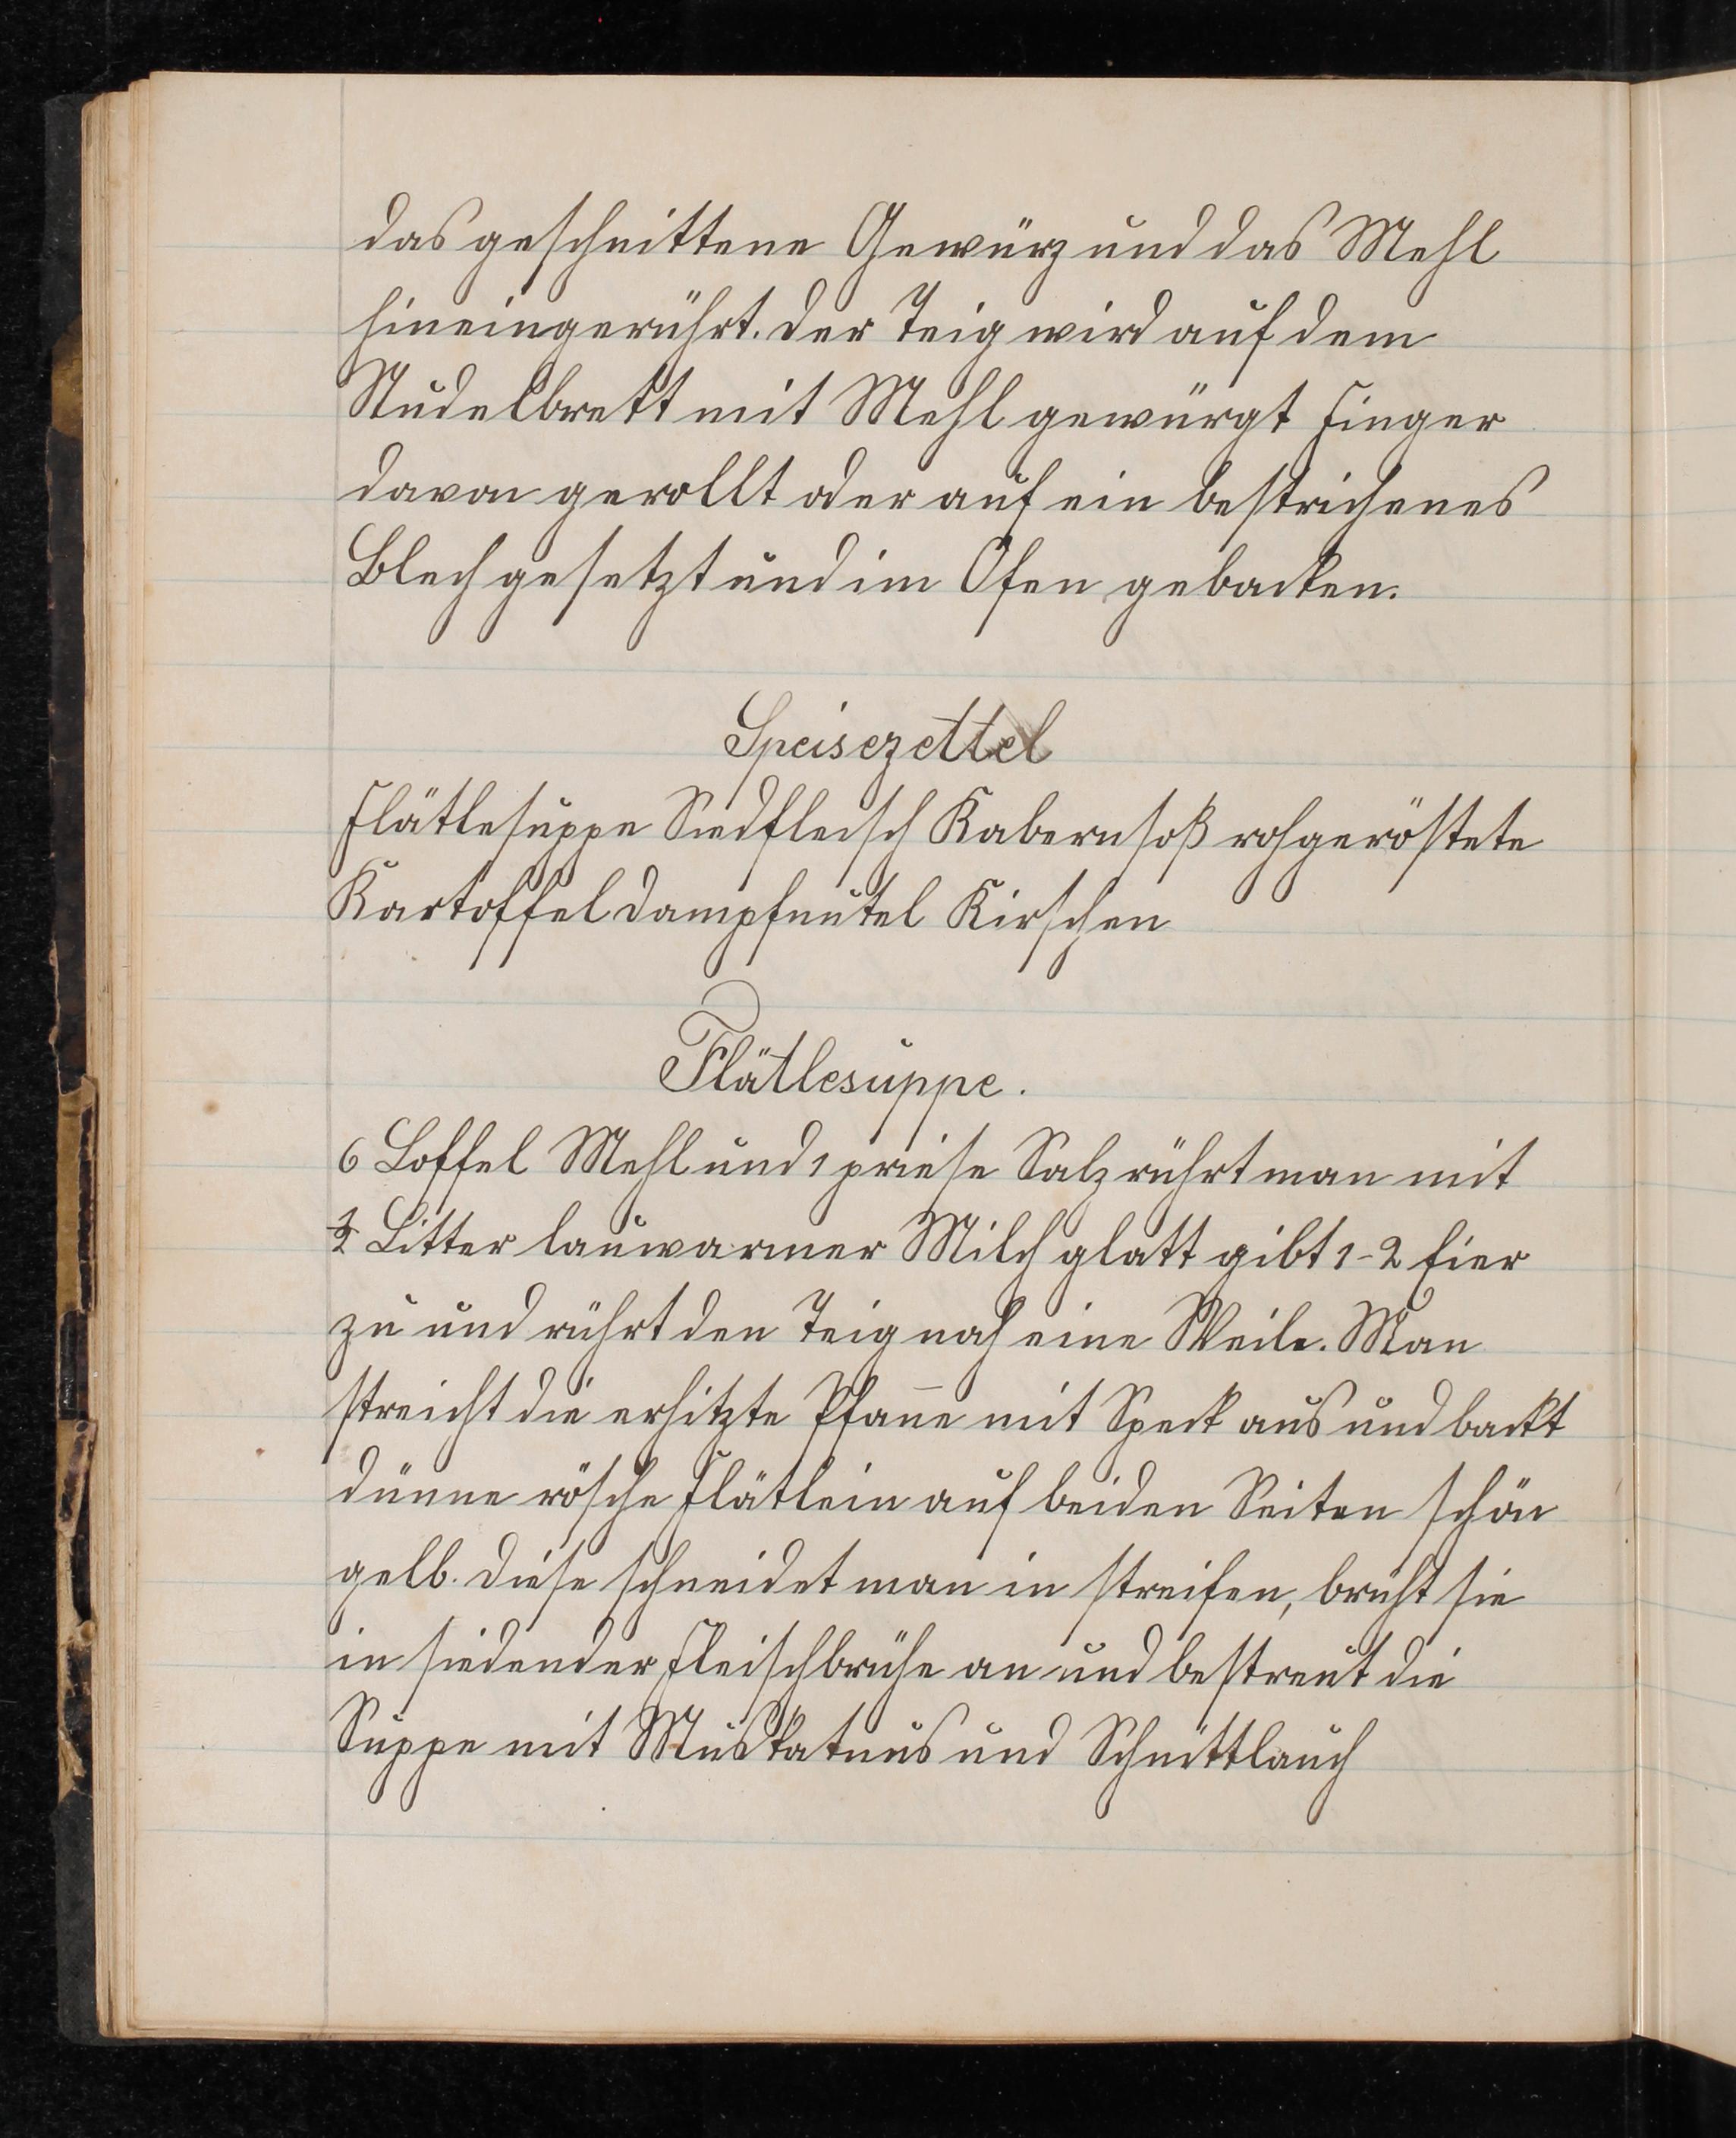 das geschnittene Gewürz und das Mehl
hineingerührt. der Teig wird auf dem
Nudelbrett mit Mehl gewürgt Finger
davon gerollt oder auf ein bestrichenes
Blech gesetzt und im Ofen gebacken.
Speisezettel
Flätlesuppe Siedfleisch Kabernsoß rohgeröstete
Kartoffel dampfnutel Kirschen
Flätlesuppe.
6 Loffel Mehl und 1 priese Salz rührt man mit
1/2 Litter lauwarmer Milch glatt gibt 1-2 Eier
zu und rührt den Teig noch eine Weile. Man
streicht die erhitzte Pfan̄e mit Speck aus und backt
dünne rösche Flätlein auf beiden Seiten schön
gelb. diese schneidet man in streifen, brüht sie
in siedender Fleischbrühe an und bestreut die
Suppe mit Muskatnus und Schnittlauch